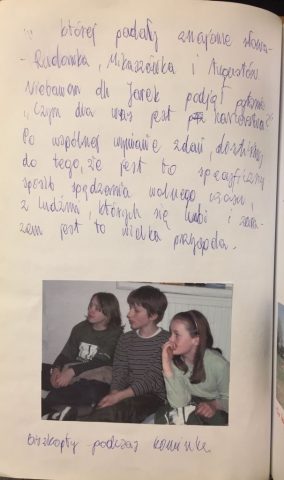 w której padały znajome słowa -
- Radomka, Mikaszówka i Augustów.
Niebawem dh Jarek podjął pytanie
„Czym dla was jest harcerstwo?"
Po wspólnej wymianie zdań, doszliśmy
do tego, że jest to specyficzny
sposób spędzania wolnego czasu,
z ludźmi, których się lubi i zara-
zem jest to wielka przygoda.
Biszkopty podczas kominka.